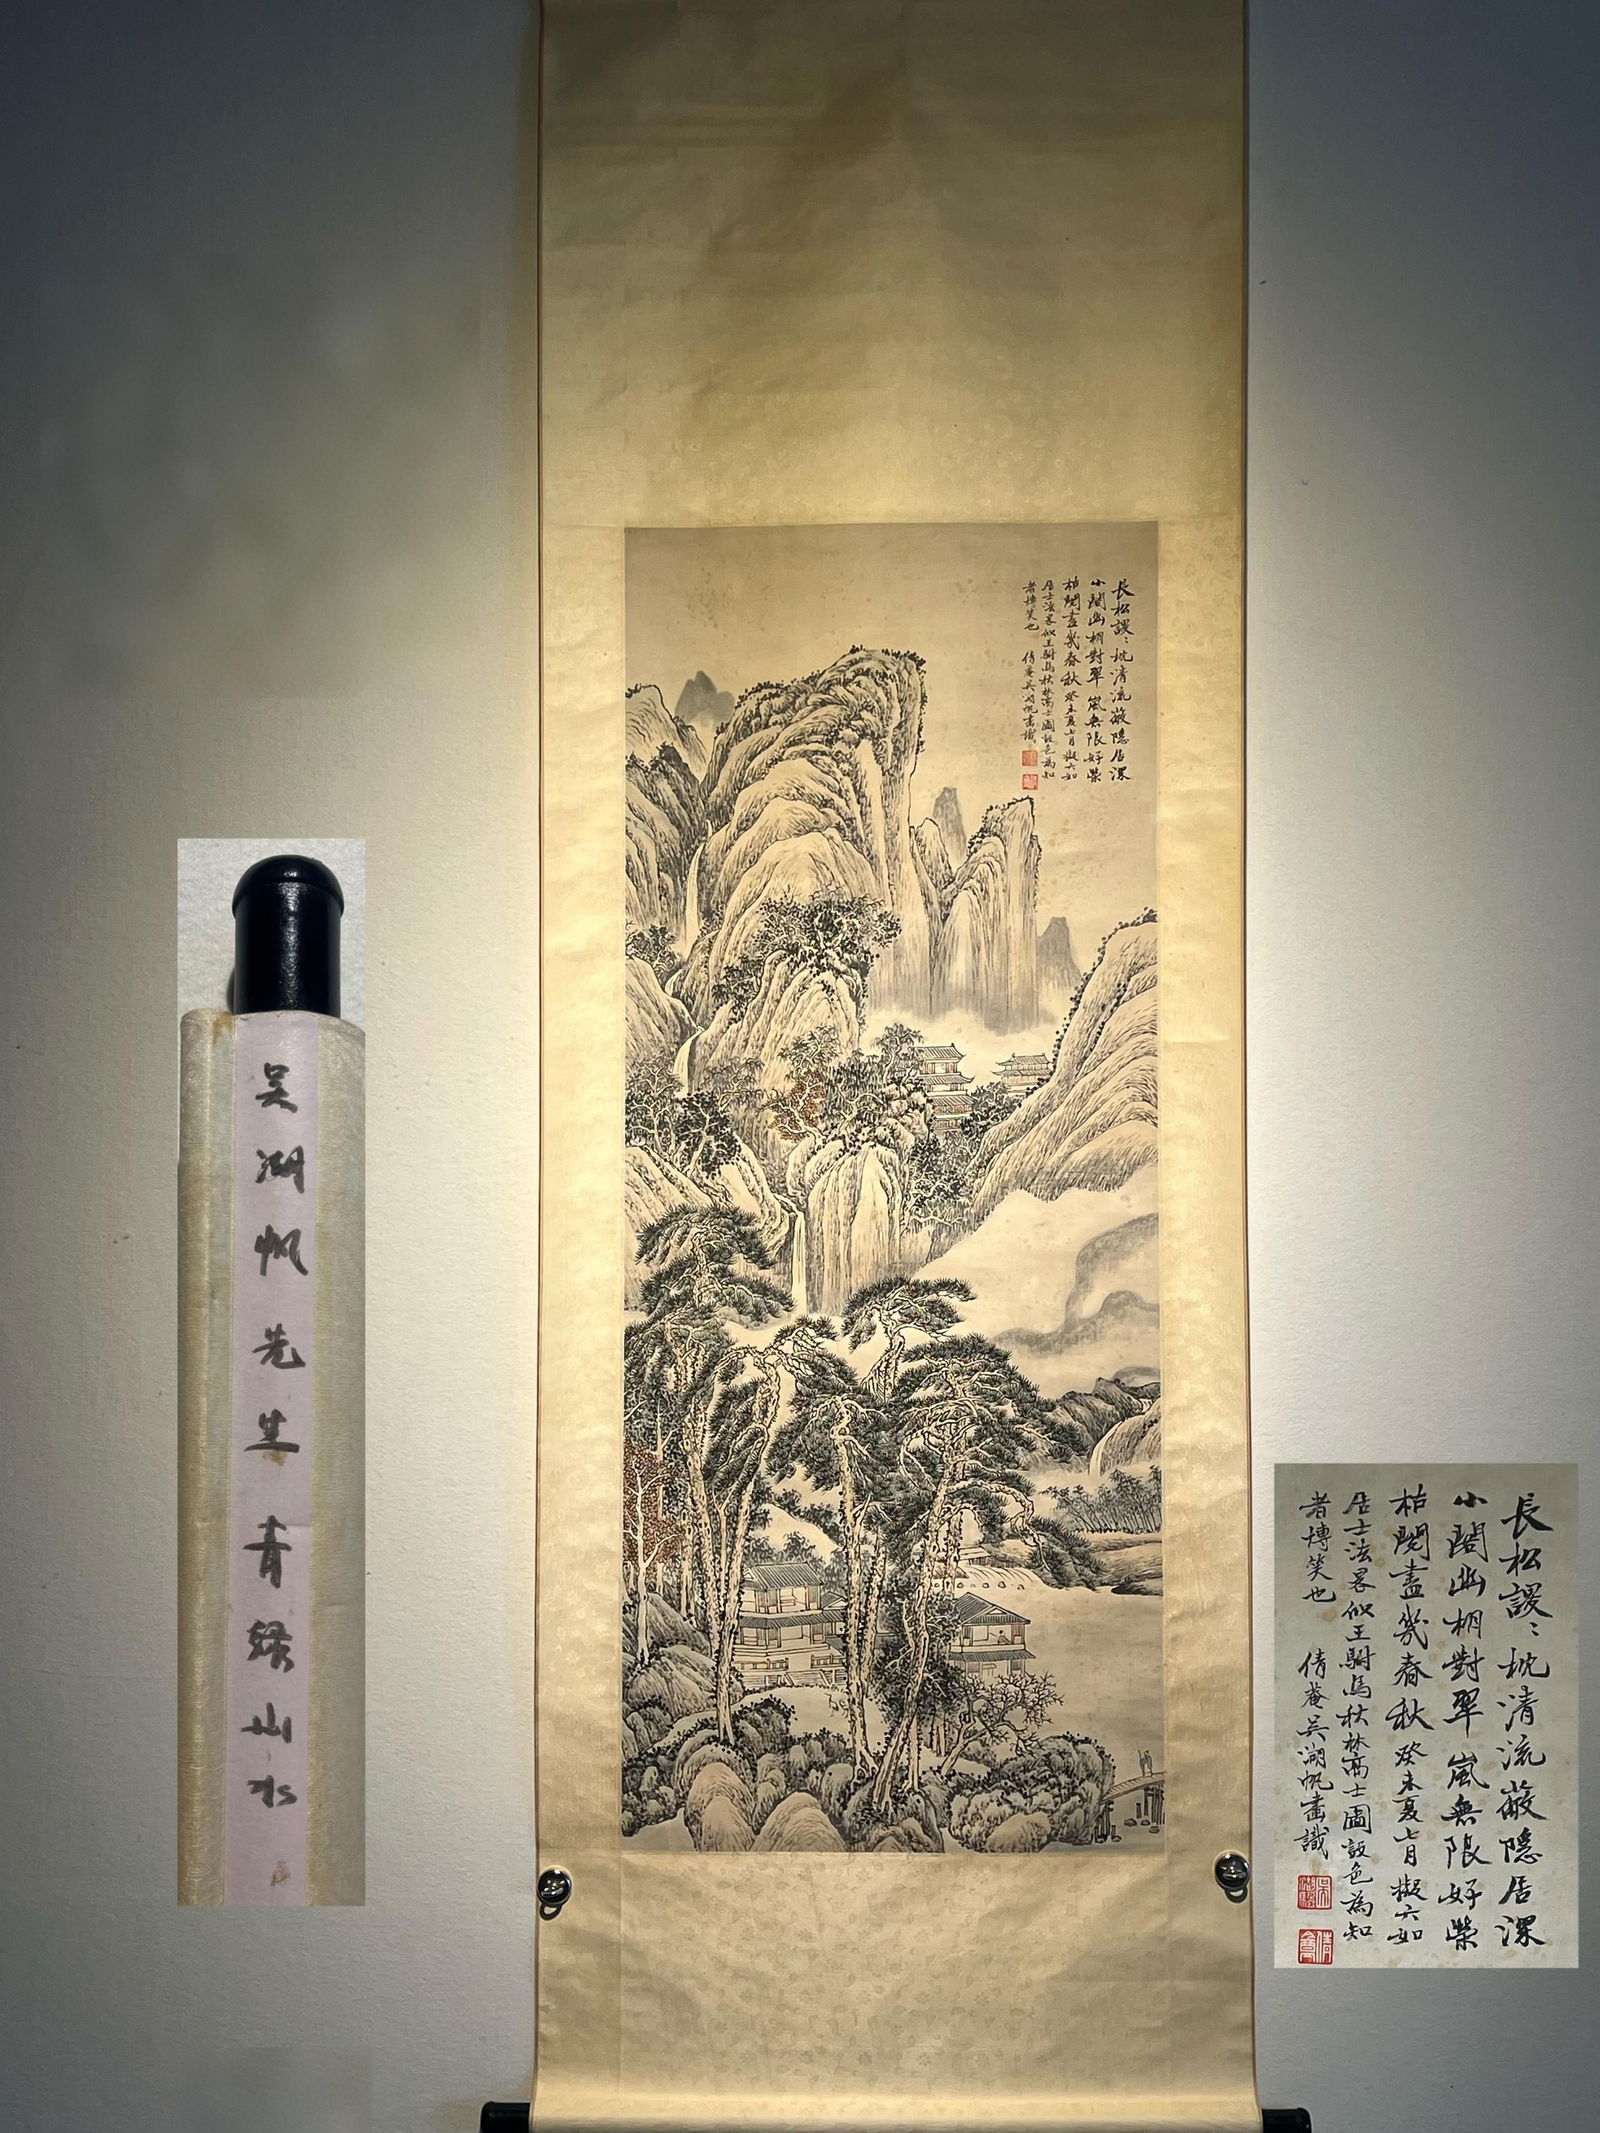 長松謖〻枕清流蔽隱居深
小閣幽栩對翠嵐無限好柴
栢閱盡幾春秋癸未夏七月擬六如
居士法畧似王駙馬秋林高士圖設色為知
者博笑也 倩菴吳湖帆畫識
吳湖帆先生青綠山水
長松謖〻枕清流蔽隱居深
小閣幽栩對翠嵐無限好柴
栢閱盡幾春秋癸未夏七月擬六如
居士法畧似王駙馬秋林高士圖設色為知
者博笑也 倩菴吳湖帆畫識